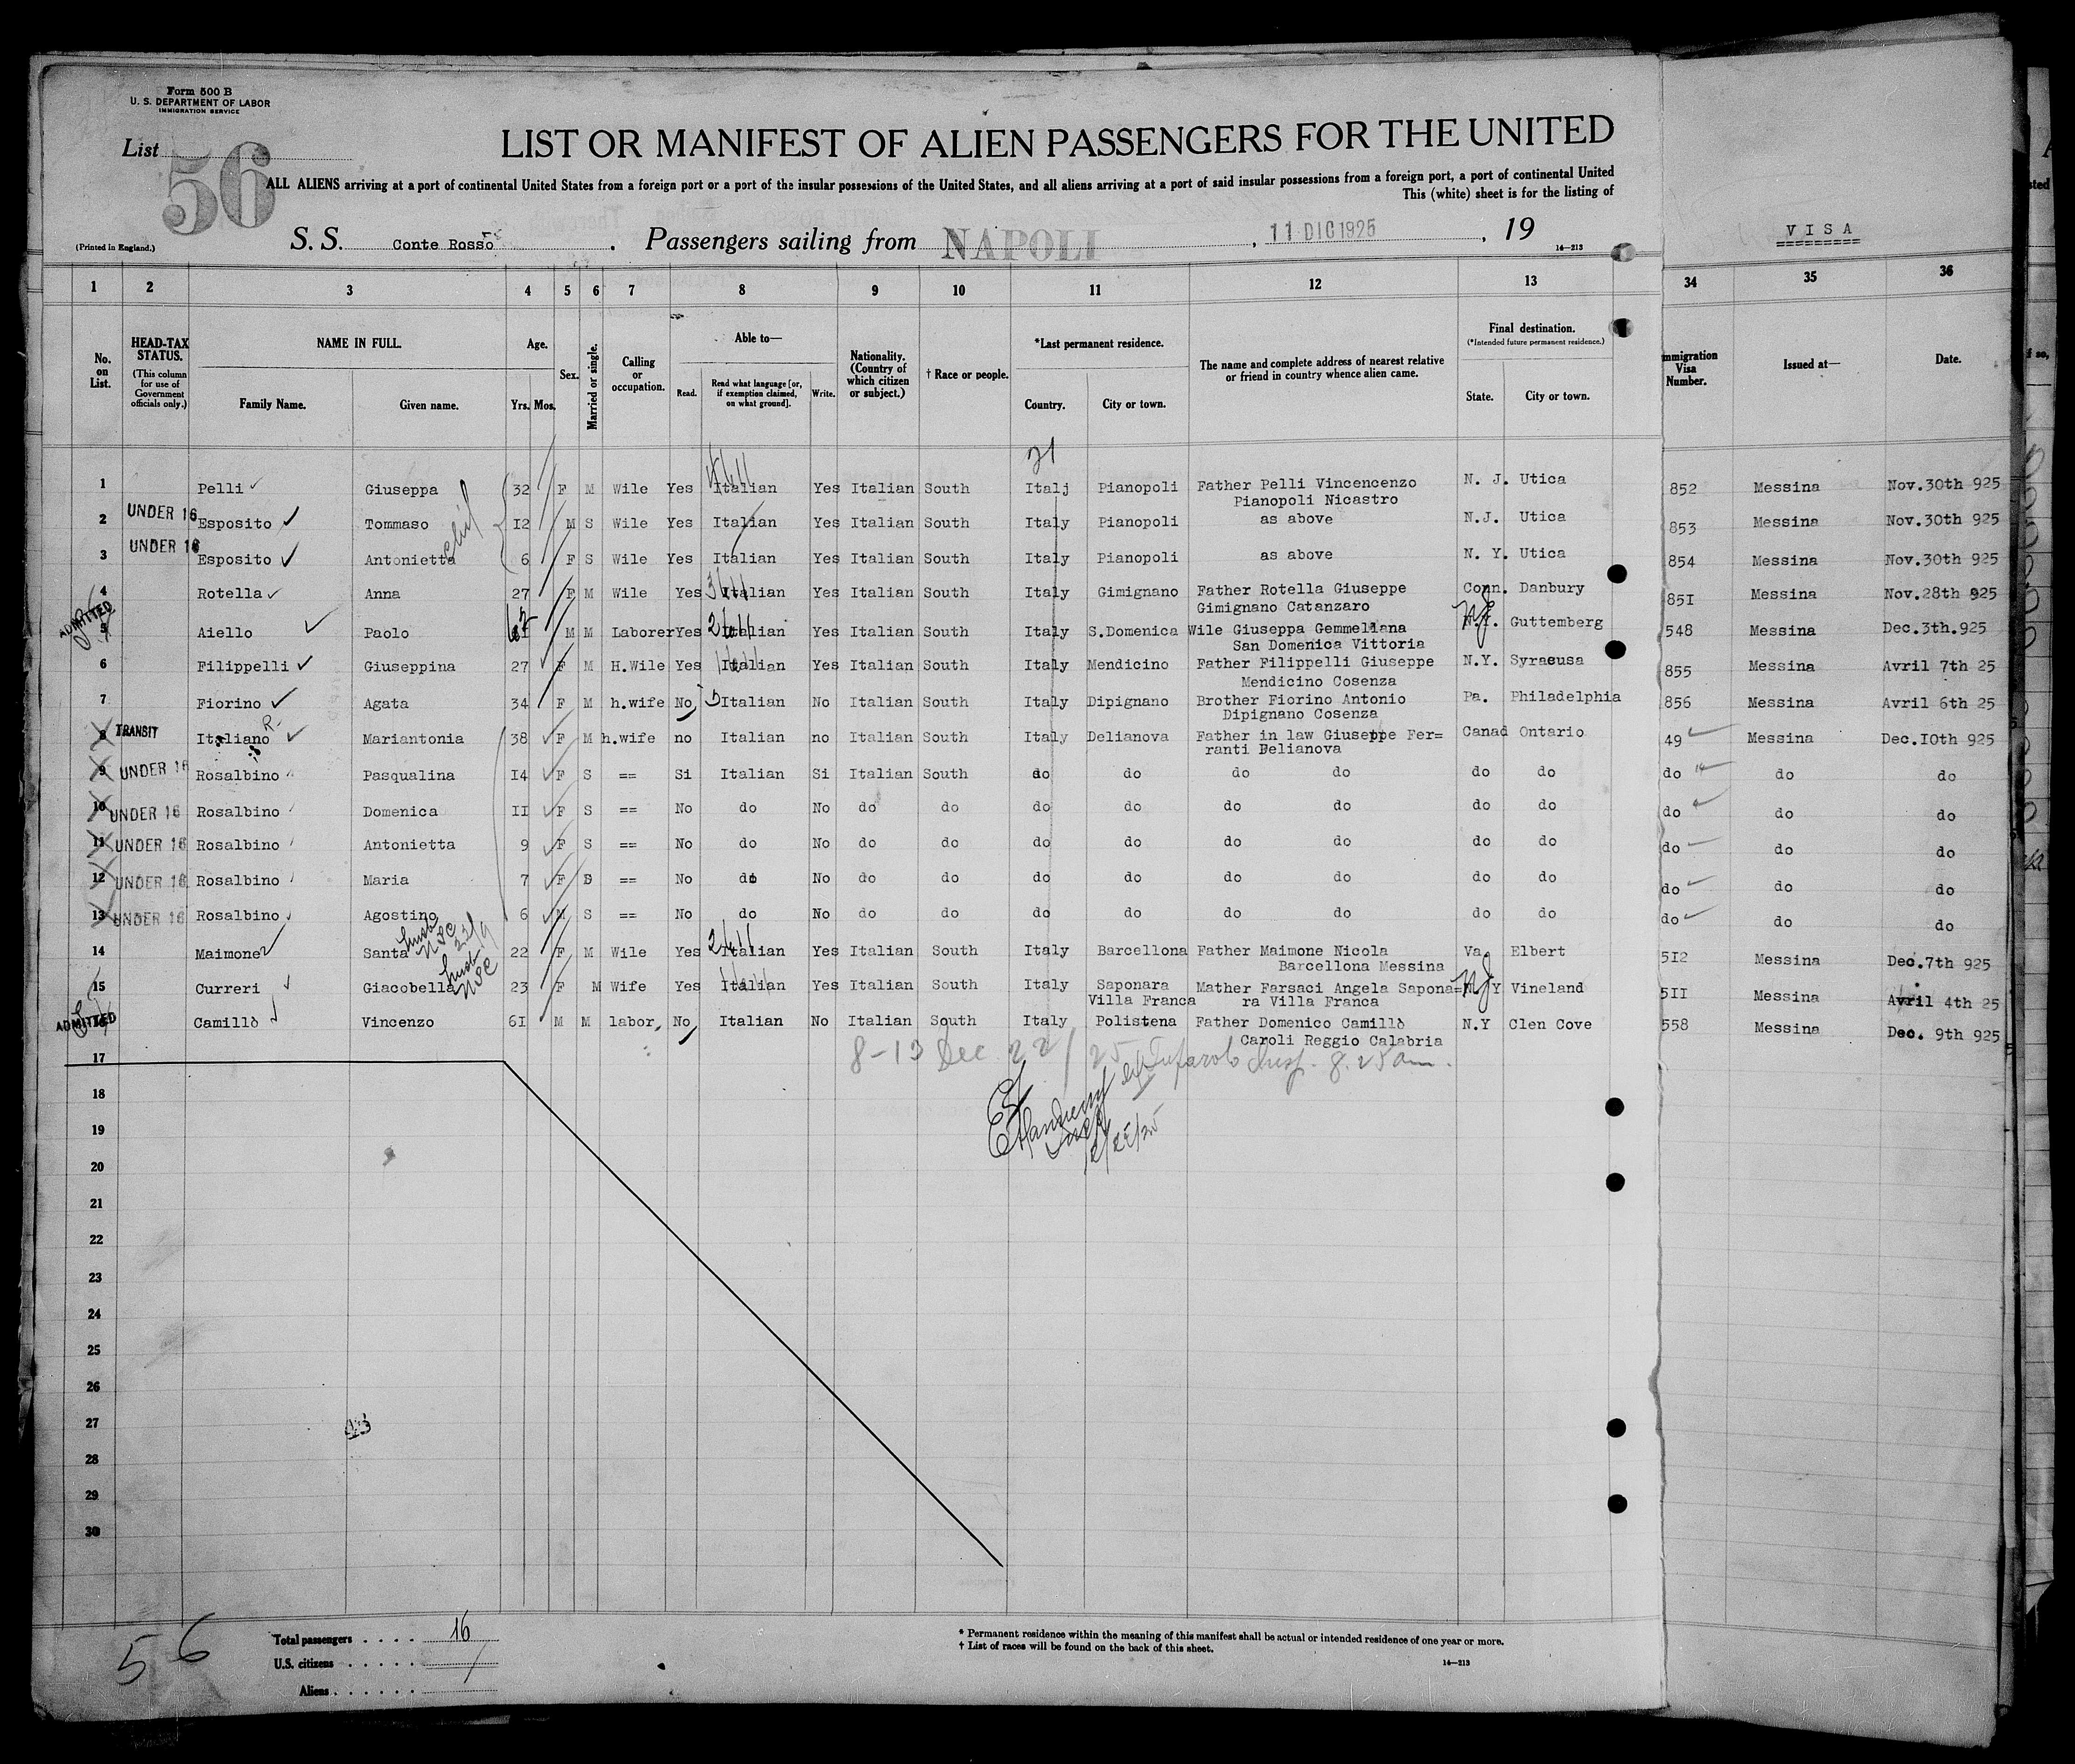 Form 500 B
U. S. DEPARTMENT OF LABOR
IMMIGRATION SERVICE
List 56
LIST OR MANIFEST OF ALIEN PASSENGERS FOR THE UNITED
ALL ALIENS arriving at a port of continental United States from a foreign port or a port of the insular possessions of the United States, and all aliens arriving at a port of said insular possessions from a foreign port, a port of continental United
This (white) sheet is for the listing of
(Printed in England.)
S. S. Conte Rosso . Passengers sailing from NAPOLI , 11 DIC 1925 , 19
14—213
VISA
1 2 3 4 5 6 7 8 9 10 11 12 13 34 35 36
No. on List.
HEAD-TAX STATUS.
(This column for use of Government officials only.)
NAME IN FULL.
Family Name. Given name.
Age.
Yrs. Mos.
Sex.
Married or single.
Calling or occupation.
Able to—
Read. Read what language [or, if exemption claimed, on what ground]. Write.
Nationality. (Country of which citizen or subject.)
† Race or people.
*Last permanent residence.
Country. City or town.
The name and complete address of nearest relative or friend in country whence alien came.
Final destination.
(*Intended future permanent residence.)
State. City or town.
mmigration Visa Number.
Issued at—
Date.
21
1 Pelli Giuseppa 32 F M Wile Yes Italian Yes Italian South Italj Pianopoli Father Pelli Vincencenzo N. J. Utica 852 Messina Nov.30th 925
Pianopoli Nicastro
2 UNDER 16 Esposito Tommaso I2 M S Wile Yes Italian Yes Italian South Italy Pianopoli as above N.J. Utica 853 Messina Nov.30th 925
3 UNDER 16 Esposito Antonietta 6 F S Wile Yes Italian Yes Italian South Italy Pianopoli as above N. Y. Utica 854 Messina Nov.30th 925
4 Rotella Anna 27 F M Wile Yes Italian Yes Italian South Italy Gimignano Father Rotella Giuseppe Conn. Danbury 85I Messina Nov.28th 925
Gimignano Catanzaro
ADMITTED
5 Aiello Paolo M M Laborer Yes Italian Yes Italian South Italy S.Domenica Wile Giuseppa Gemmellana NJ Guttemberg 548 Messina Dec.3th.925
San Domenica Vittoria
6 Filippelli Giuseppina 27 F M H.Wile Yes Italian Yes Italian South Italy Mendicino Father Filippelli Giuseppe N.Y. Syracusa 855 Messina Avril 7th 25
Mendicino Cosenza
7 Fiorino Agata 34 F M h.wife No Italian No Italian South Italy Dipignano Brother Fiorino Antonio Pa. Philadelphia 856 Messina Avril 6th 25
Dipignano Cosenza
8 TRANSIT Italiano R. Mariantonia 38 F M h.wife no Italian no Italian South Italy Delianova Father in law Giuseppe Fer= Canad Ontario 49 Messina Dec.I0th 925
ranti Delianova
9 UNDER 16 Rosalbino Pasqualina I4 F S == Si Italian Si Italian South do do do do do do do do do
10 UNDER 16 Rosalbino Domenica II F S == No do No do do do do do do do do do do do
11 UNDER 16 Rosalbino Antonietta 9 F S == No do No do do do do do do do do do do do
12 UNDER 16 Rosalbino Maria 7 F S == No do No do do do do do do do do do do do
13 UNDER 16 Rosalbino Agostino 6 M S == No do No do do do do do do do do do do do
14 Maimone Santa 22 F M Wile Yes Italian Yes Italian South Italy Barcellona Father Maimone Nicola Va Elbert 5I2 Messina Dec.7th 925
Barcellona Messina
15 Curreri Giacobella 23 F M Wife Yes Italian Yes Italian South Italy Saponara Mather Farsaci Angela Sapona= NJ Vineland 5II Messina Avril 4th 25
Villa Franca ra Villa Franca
ADMITTED Camillò Vincenzo 6I M M labor, No Italian No Italian South Italy Polistena Father Domenico Camillò N.Y Clen Cove 558 Messina Dec. 9th 925
Caroli Reggio Calabria
8-13 Dec 22/25 Insp. 8.25 am.
17
18
19
20
21
22
23
24
25
26
27
28
29
30
Total passengers . . . . 16
U.S. citizens . . . . . .
Aliens . . . . . . .
56
* Permanent residence within the meaning of this manifest shall be actual or intended residence of one year or more.
† List of races will be found on the back of this sheet.
14—213